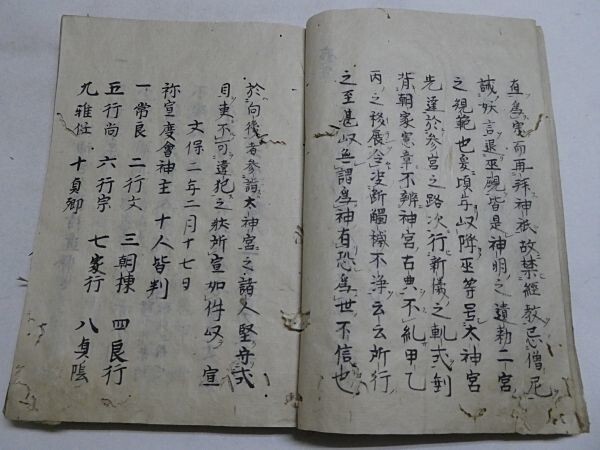 直為宗而再拝神祇故禁経教忌僧尼
誡妖言退巫覡皆是神明之遺勅二宮
之規範也爰頃与奴
巫等号太神宮
先達於参宮之路次行新儀之軌式剰
背朝家憲章不辨神宮古典不糺甲乙
丙之
展
触穢不浄云云所行
之至甚以無謂為神有恐為世不信也
於向後者参詣太神宮之諸人堅守式
目更不可違犯之状所宣如件以宣
文保二年二月十七日
祢宜度會神主十人皆判
一常良 二行文 三朝棟 四良行
五行尚 六行宗 七家行 八貞蔭
九雅任 十貞郷